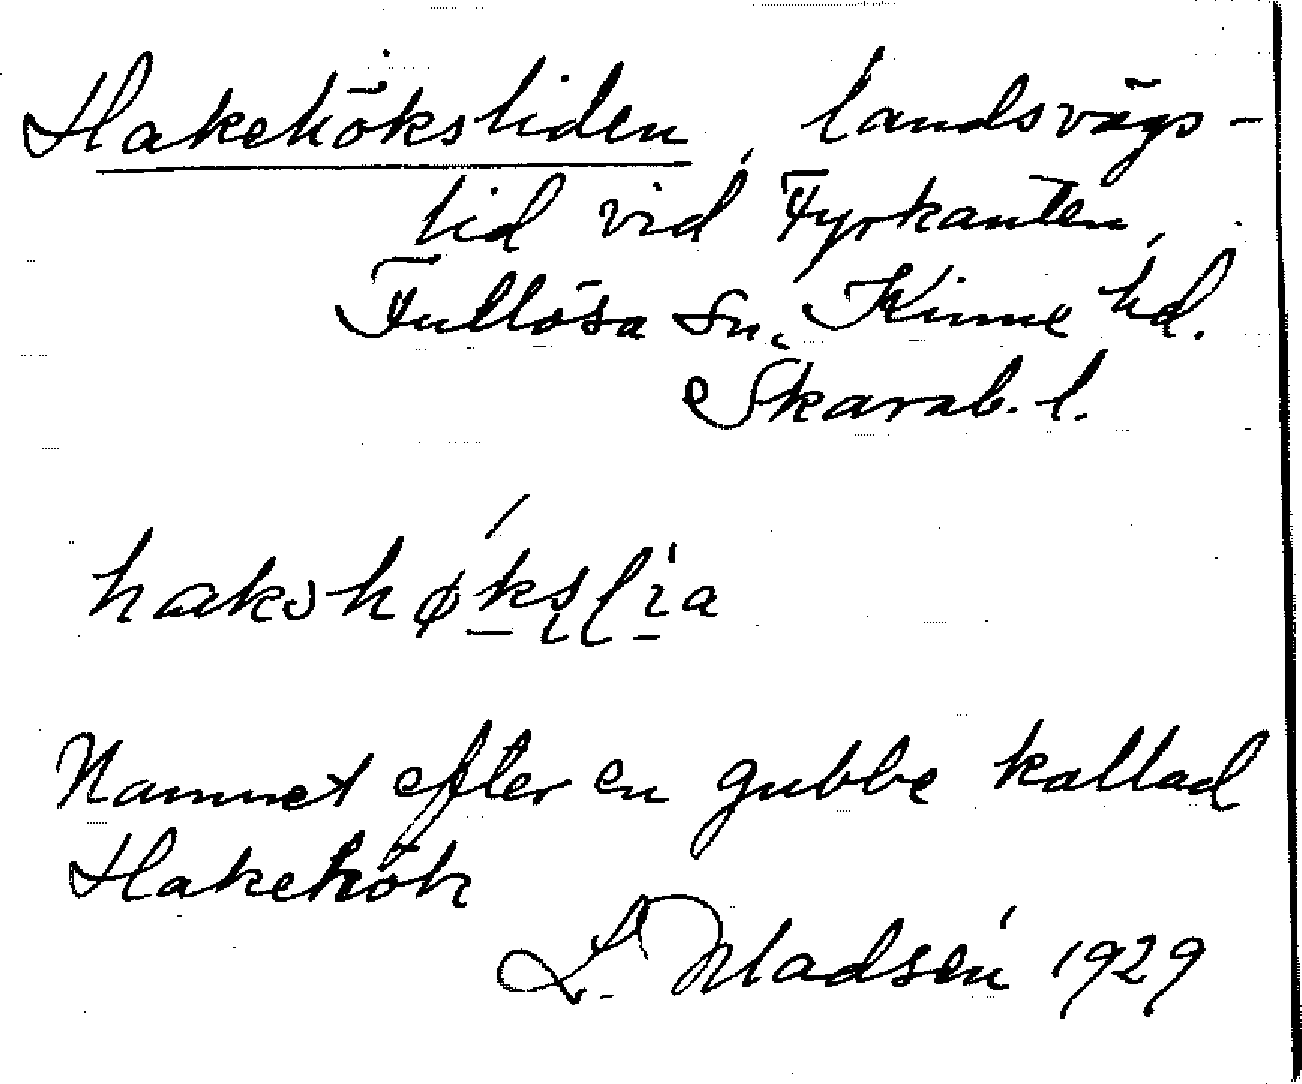 Hakehöksliden, landsvägs-
lid vid Fyrkanten,
Fullösa sn, Kinne hd.
Skarab. l.
hakshøkslia
Namnet efter en gubbe kallad
Hakehök
L. Madsén 1929